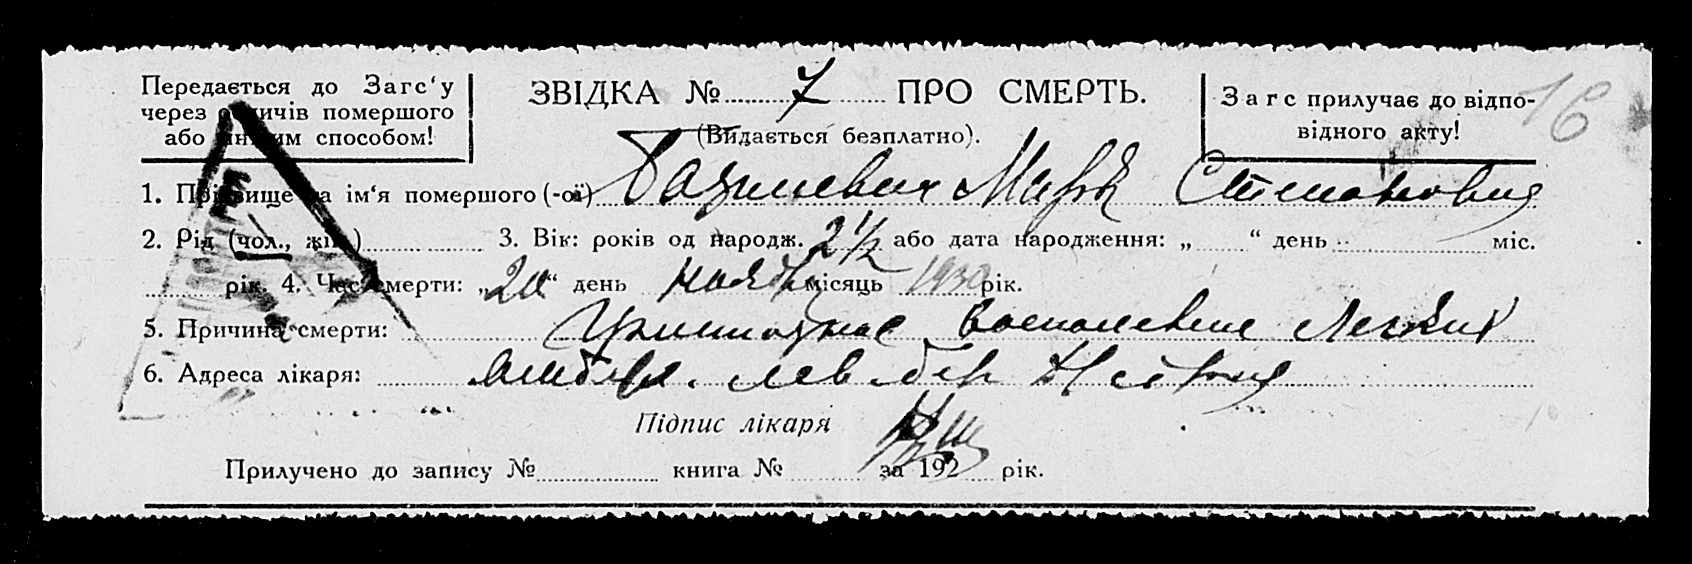 Передається до Загс‘у
через родичів помершого
або иншим способом!
ЗВІДКА № 7 ПРО СМЕРТЬ.
(Видається безплатно).
Загс прилучає до відпо-
відного акту!
16
1. Прізвище та ім‘я помершого (-ої) Базилевич Марк Степанович
2. Рід (чол., жін.) 3. Вік: років од народж. 2 1/2 або дата народження: „ “ день міс.
рік. 4. Час смерти: „20“ день ноября місяць 1930 рік.
5. Причина смерти: воспаление легких
6. Адреса лікаря: Амбул.
Підпис лікаря
Прилучено до запису № книга № за 192 рік.